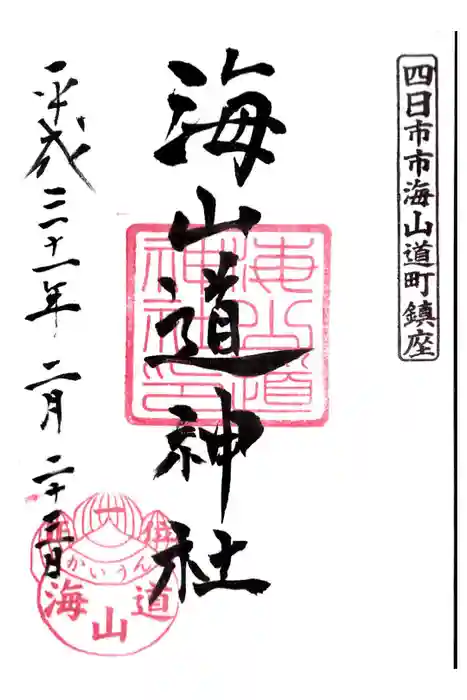 四日市市海山道町鎮座
海山道神社
海山道
神社印
平成三十一年 二月 二十三日
かいうん
海山道